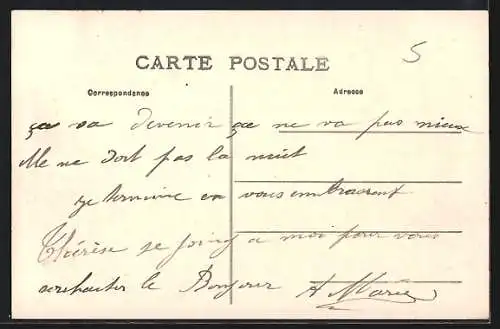 CARTE POSTALE
5
Correspondance
Adresse
ça va devenir ça ne va pas mieux
Elle ne dort pas la nuit
Je termine en vous embrassant
Thérèse se joint a moi pour vous
souhaiter le Bonjour
Marie